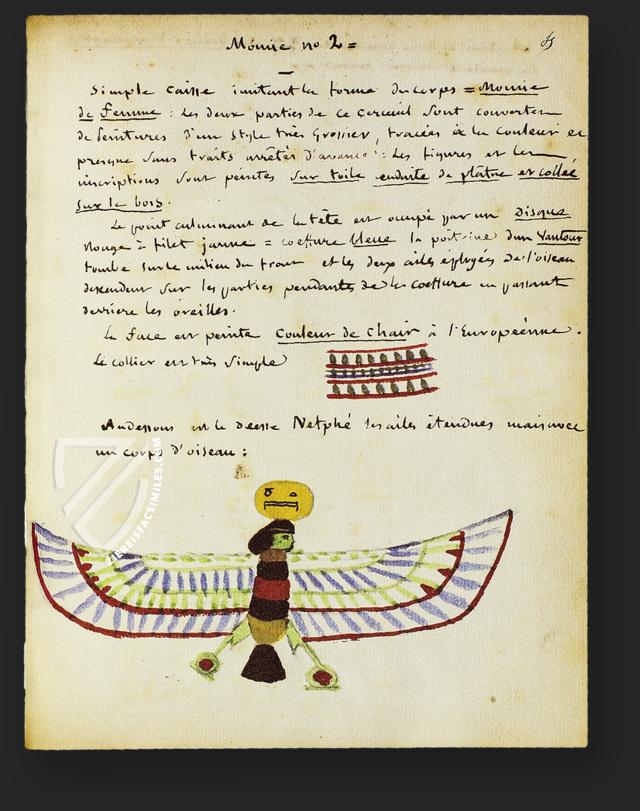 Momie no 2 =
simple caisse imitant la forme du corps = Momie
de femme : les deux parties de ce cercueil sont couvertes
de peintures d'un style très grossier, tracées à la couleur et
presque sans traits arrêtés d'avance : Les figures et les
inscriptions sont peintes sur toile enduite de plâtre et collée
sur le bois.
Le point culminant de la tête est occupé par un Disque
rouge à filet jaune = coeffure bleue la poitrine d'un Vautour
tombe sur le milieu du front et les deux ailes éployées de l'oiseau
descendent sur les parties pendantes de la coeffure en passant
derrière les oreilles.
La face est peinte Couleur de Chair à l'Européenne.
Le collier est très simple
Audessous est la déesse Netphé les ailes étendues mais avec
un corps d'oiseau :
ZIEREISFACSIMILES.COM